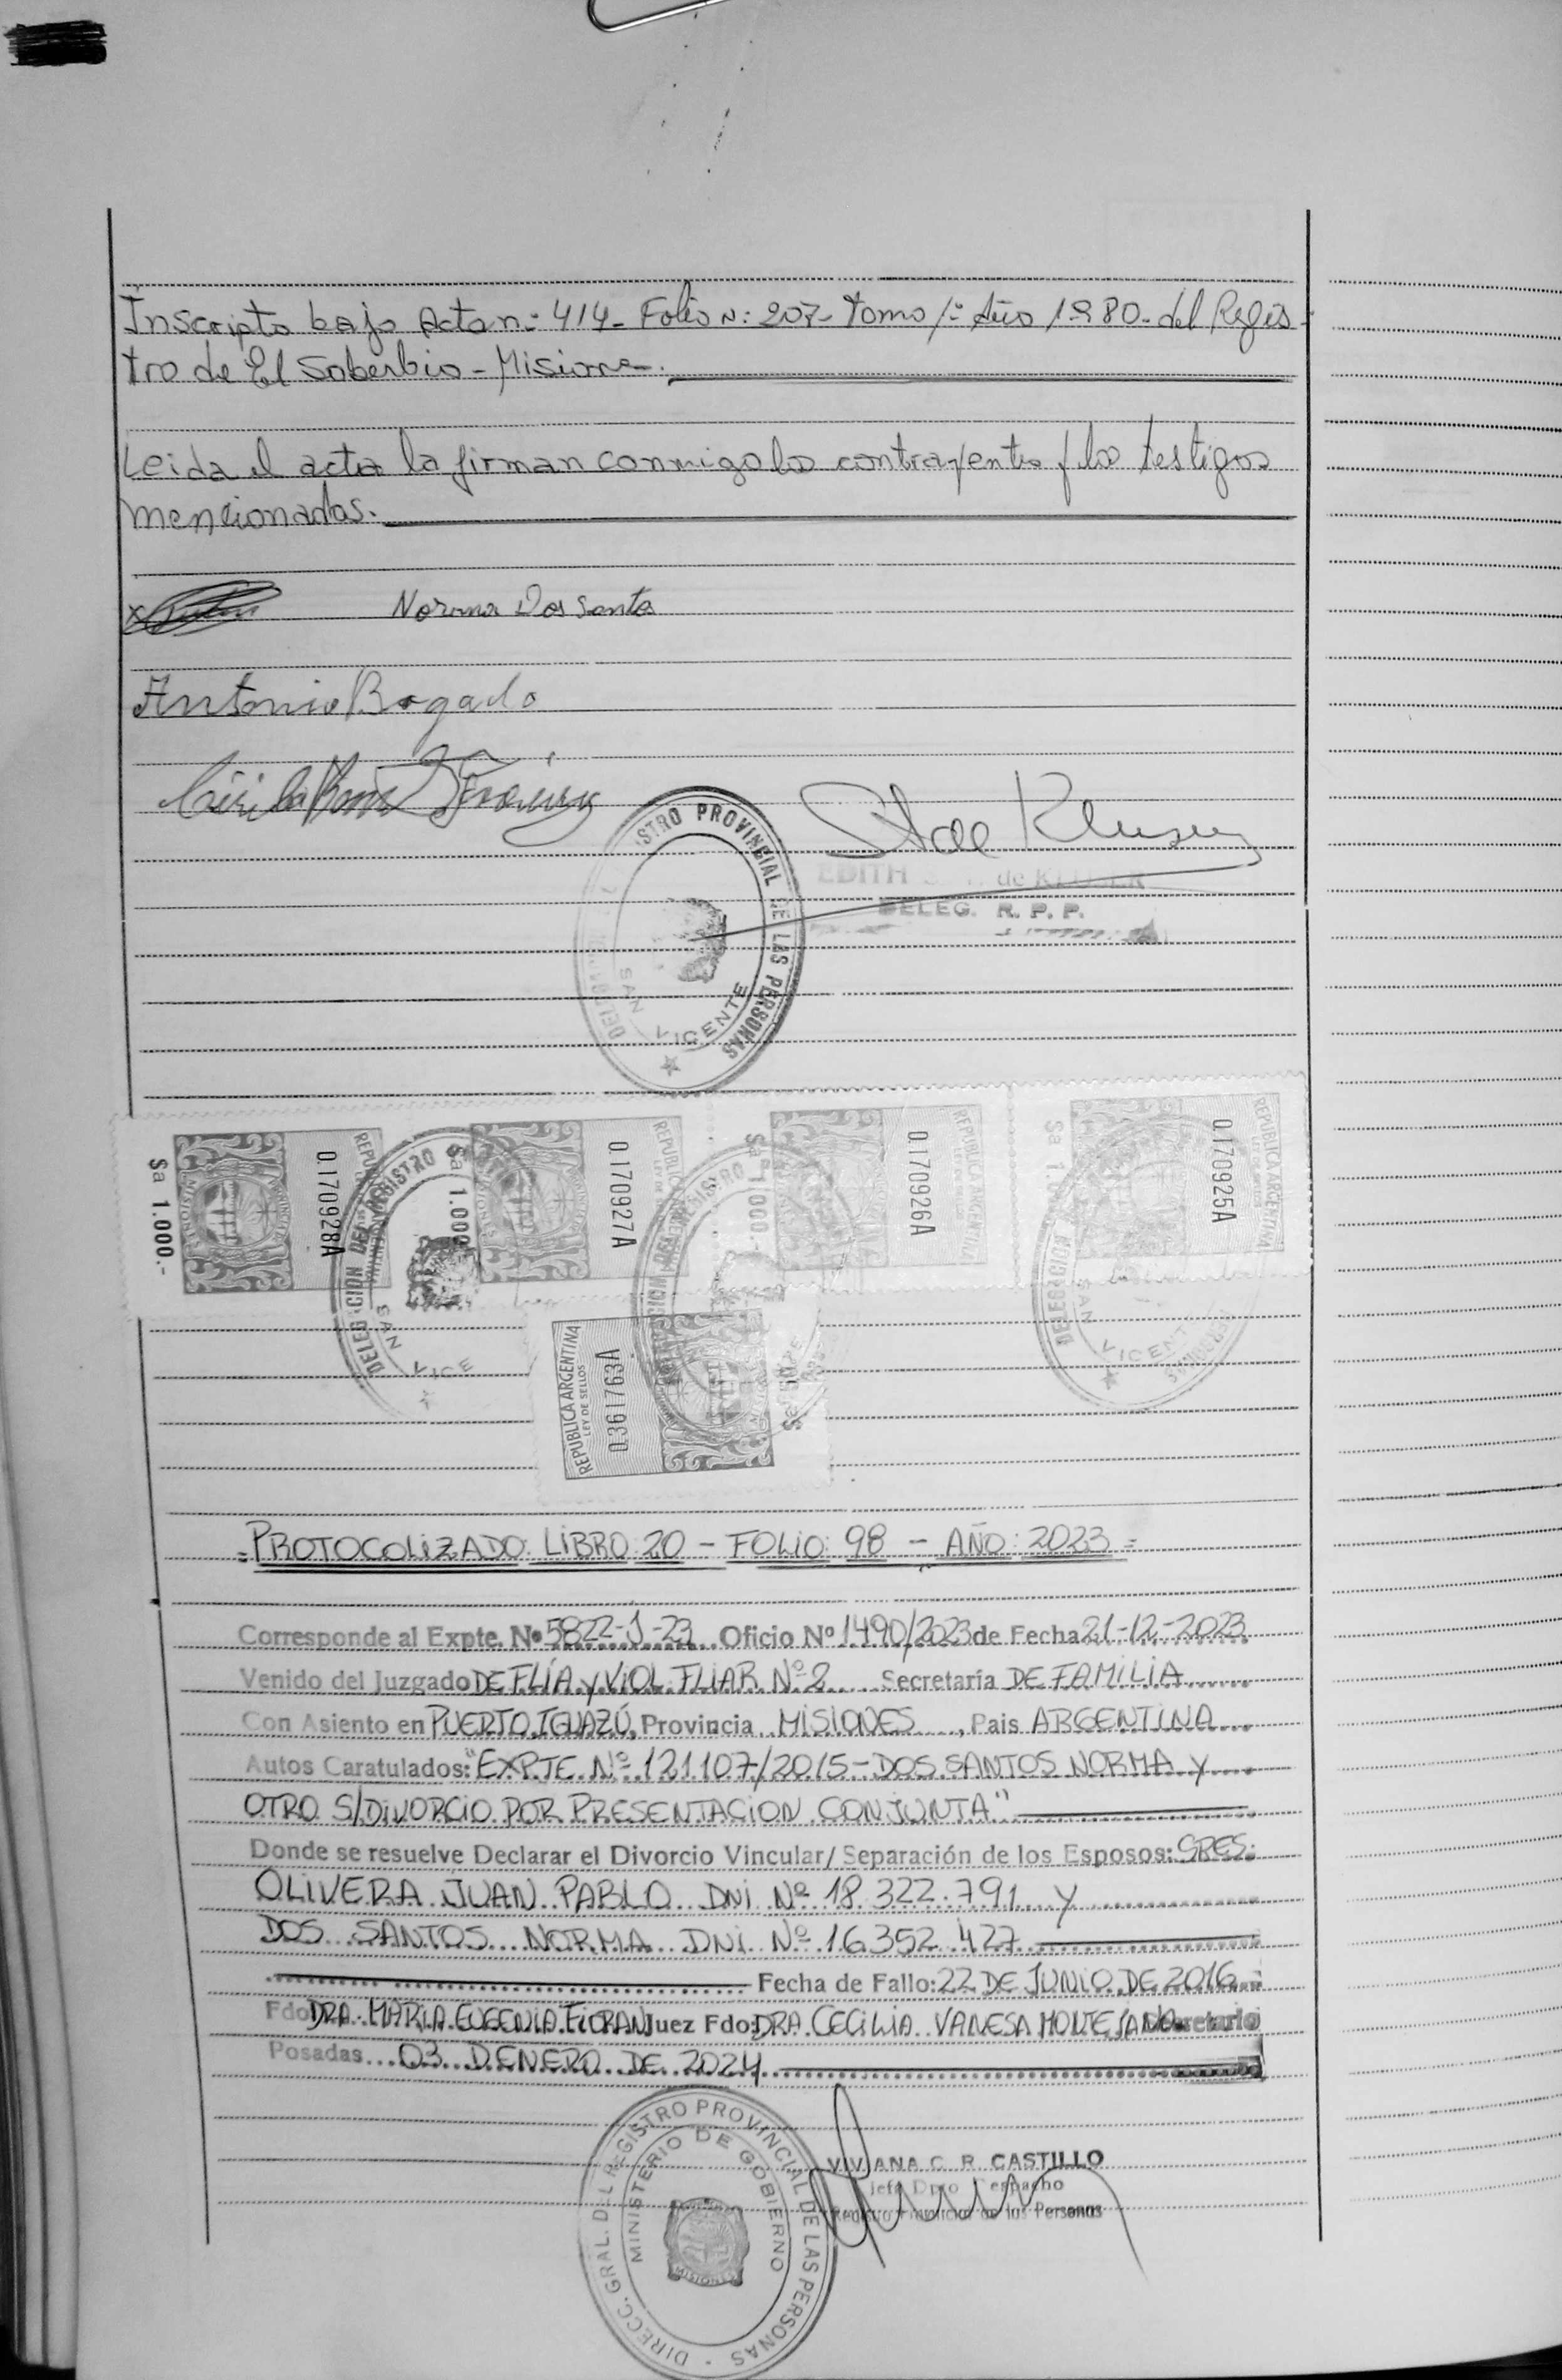 Inscripto bajo Acta n: 414- Folio N: 207- Tomo 1º Año 1980- del Regis-
tro de El Soberbio - Misiones.
Leida el acta la firman conmigo los contrayentes y los testigos
mencionados.
Norma Dos Santos
Antonio Bogado
STRO PROVINCIAL DE LAS PERSONAS
SAN VICENTE
EDITH de KLUSER
DELEG. R. P. P.
Sa 1.000.-
0.170928A
Sa 1.000
0.170927A
REPUBLICA ARGENTINA
0.170926A
REPUBLICA ARGENTINA
0.170925A
REPUBLICA ARGENTINA
LEY DE SELLOS
0.361763A
=PROTOCOLIZADO: LIBRO: 20 - FOLIO: 98 - AÑO: 2023=
Corresponde al Expte. Nº 5822-J-23 Oficio Nº 1490/2023 de Fecha 21-12-2023
Venido del Juzgado DE FLÍA y VIOL FLIAR Nº 2 Secretaría DE FAMILIA
Con Asiento en PUERTO IGUAZÚ, Provincia MISIONES, Pais ARGENTINA
Autos Caratulados: "EXPTE Nº 121107/2015 - DOS SANTOS NORMA y
OTRO S/DIVORCIO POR PRESENTACION CONJUNTA"
Donde se resuelve Declarar el Divorcio Vincular/ Separación de los Esposos: SRES.
OLIVERA JUAN PABLO DNI Nº 18.322.791 y
DOS SANTOS NORMA DNI Nº 16.352.427
Fecha de Fallo: 22 DE JUNIO DE 2016
Fdo DRA. MARIA EUGENIA FIORANI Juez Fdo: DRA CECILIA VANESA MONTESANO Secretario
Posadas 03 D ENERO DE 2024
DIRECC. GRAL. DEL REGISTRO PROVINCIAL DE LAS PERSONAS
MINISTERIO DE GOBIERNO
MISIONES
VIVIANA C. R. CASTILLO
Jefa Dpto Despacho
Registro Provincial de las Personas